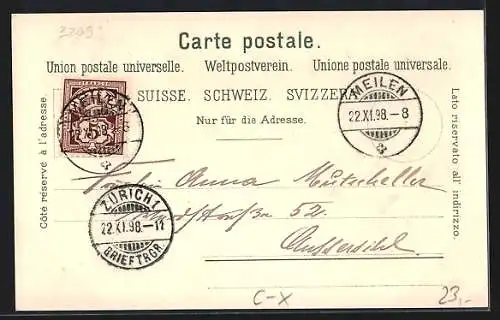 Carte postale.
Union postale universelle. Weltpostverein. Unione postale universale.
SUISSE. SCHWEIZ. SVIZZERA.
Nur für die Adresse.
Côté réservé à l'adresse.
Lato riservato all' indirizzo.
MEILEN
5
MEILEN
22.XI.98.-8
Fräulein Anna Mutscheller
52
Aussersihl
ZÜRICH 1
22.XI.98.-11
BRIEFTRGR.
C-X
23,-